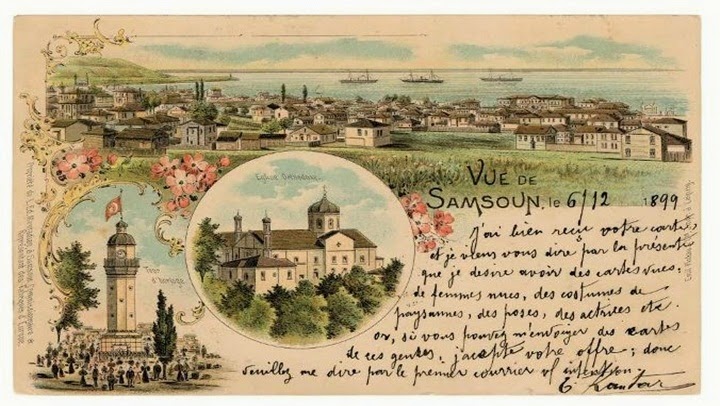 Eglise Orthodoxe.
VUE DE
SAMSOUN, le 6/12 1899
Tour
d'horloge
J'ai bien reçu votre carte,
et je viens vous dire par la présente
que je desire avoir des cartes vues,
de femmes nues, des costumes de
paysannes, des poses, des actrices etc.
or, si vous pouvez m'envoyer des cartes
de ces genres, j'accepte votre offre; donc
veuillez me dire par le premier courrier vos intention.